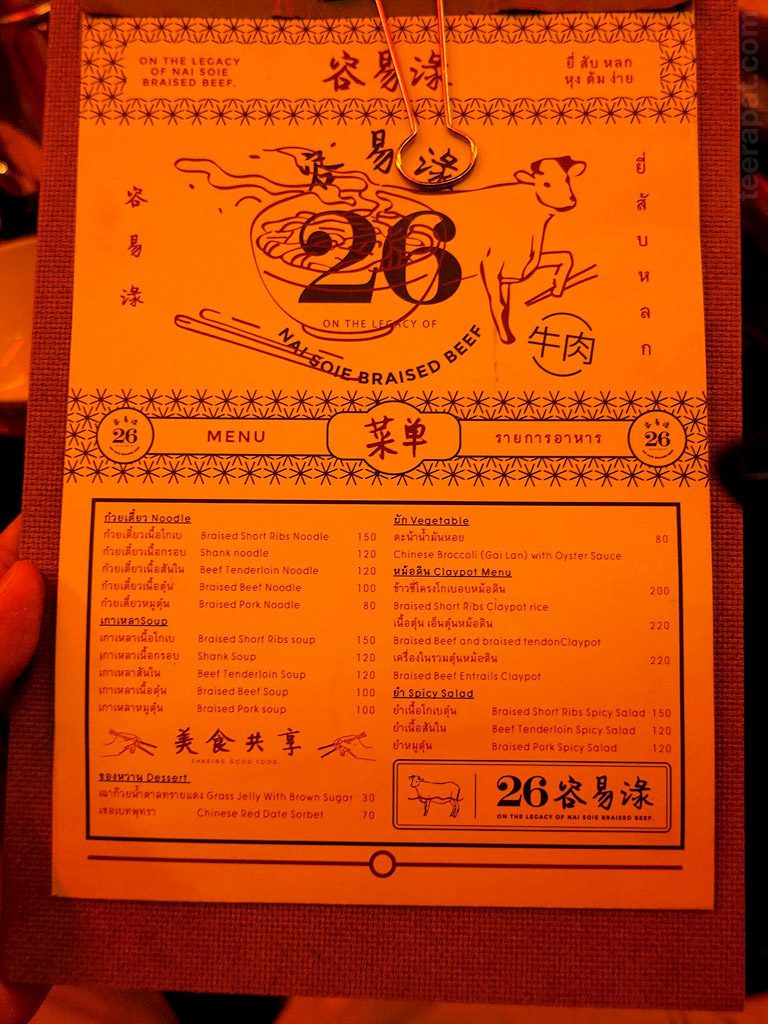 ON THE LEGACY
OF NAI SOIE
BRAISED BEEF.
容易淥
ยี่ สับ หลก
หุง ต้ม ง่าย
容易淥
容易淥
26
ON THE LEGACY OF
NAI SOIE BRAISED BEEF
牛肉
ยี่สับหลก
26
MENU
菜单
รายการอาหาร
26
ก๋วยเตี๋ยว Noodle
ก๋วยเตี๋ยวเนื้อโกเบ Braised Short Ribs Noodle 150
ก๋วยเตี๋ยวเนื้อกรอบ Shank noodle 120
ก๋วยเตี๋ยวเนื้อสันใน Beef Tenderloin Noodle 120
ก๋วยเตี๋ยวเนื้อตุ๋น Braised Beef Noodle 100
ก๋วยเตี๋ยวหมูตุ๋น Braised Pork Noodle 80
เกาเหลาSoup
เกาเหลาเนื้อโกเบ Braised Short Ribs soup 150
เกาเหลาเนื้อกรอบ Shank Soup 120
เกาเหลาสันใน Beef Tenderloin Soup 120
เกาเหลาเนื้อตุ๋น Braised Beef Soup 100
เกาเหลาหมูตุ๋น Braised Pork soup 100
美食共享
SHARING GOOD FOOD
ของหวาน Dessert
เฉาก๊วยน้ำตาลทรายแดง Grass Jelly With Brown Sugar 30
เชอเบทพุทรา Chinese Red Date Sorbet 70
ผัก Vegetable
คะน้าน้ำมันหอย 80
Chinese Broccoli (Gai Lan) with Oyster Sauce
หม้อดิน Claypot Menu
ข้าวซี่โครงโกเบอบหม้อดิน 200
Braised Short Ribs Claypot rice
เนื้อตุ๋น เอ็นตุ๋นหม้อดิน 220
Braised Beef and braised tendonClaypot
เครื่องในรวมตุ๋นหม้อดิน 220
Braised Beef Entrails Claypot
ยำ Spicy Salad
ยำเนื้อโกเบตุ๋น Braised Short Ribs Spicy Salad 150
ยำเนื้อสันใน Beef Tenderloin Spicy Salad 120
ยำหมูตุ๋น Braised Pork Spicy Salad 120
26 容易淥
ON THE LEGACY OF NAI SOIE BRAISED BEEF.
teerapat.com